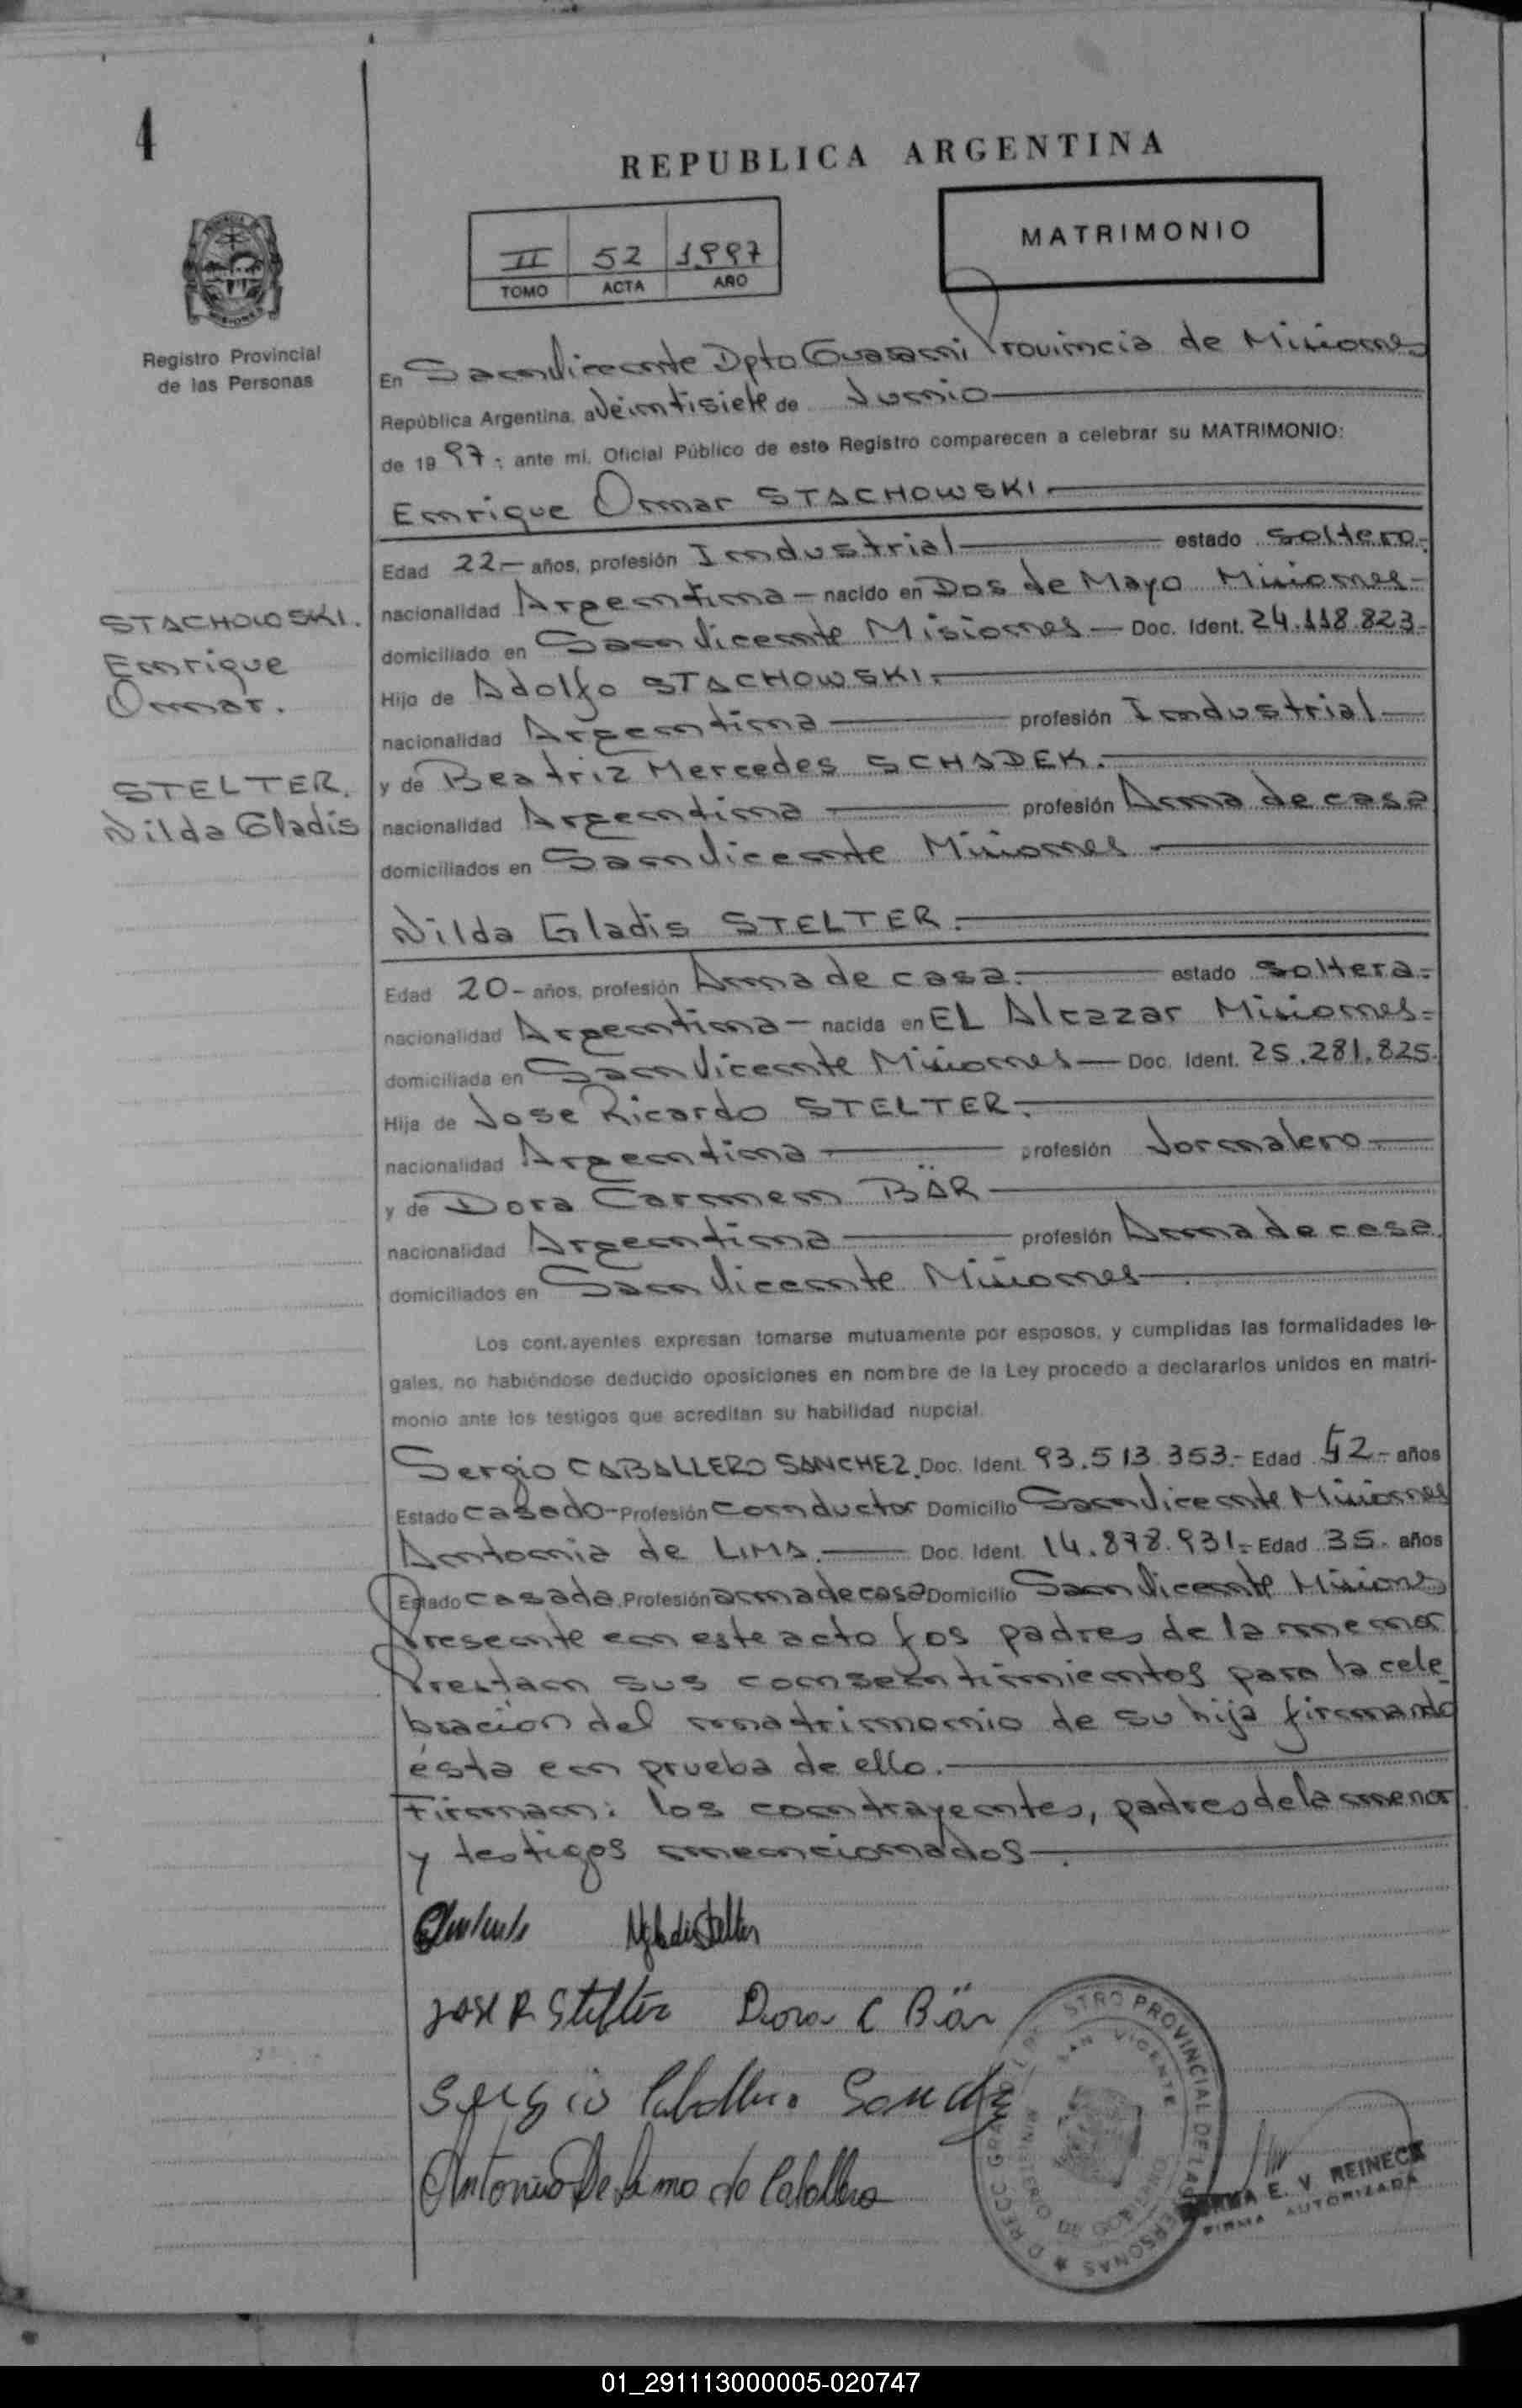 4
REPUBLICA ARGENTINA
II 52 1997
TOMO ACTA AÑO
MATRIMONIO
Registro Provincial
de las Personas
En San Vicente Dpto Guarani Provincia de Misiones
República Argentina, a Veintisiete de Junio
de 1997; ante mí, Oficial Público de este Registro comparecen a celebrar su MATRIMONIO:
Enrique Omar STACHOWSKI.
Edad 22.- años, profesión Industrial estado soltero.-
nacionalidad Argentina - nacido en Dos de Mayo Misiones-
domiciliado en San Vicente Misiones - Doc. Ident. 24.118.823-
STACHOWSKI.
Enrique
Omar.
Hijo de Adolfo STACHOWSKI.
nacionalidad Argentina profesión Industrial
y de Beatriz Mercedes SCHADEK.
STELTER.
Nilda Gladis
nacionalidad Argentina profesión Ama de casa
domiciliados en San Vicente Misiones
Nilda Gladis STELTER.
Edad 20- años, profesión Ama de casa. estado soltera.-
nacionalidad Argentina - nacida en EL Alcazar Misiones.-
domiciliada en San Vicente Misiones - Doc. Ident. 25.281.825.
Hija de Jose Ricardo STELTER.
nacionalidad Argentina profesión Jornalero
y de Dora Carmen BÄR
nacionalidad Argentina profesión Ama de casa.
domiciliados en San Vicente Misiones
Los contrayentes expresan tomarse mutuamente por esposos, y cumplidas las formalidades le-
gales, no habiéndose deducido oposiciones en nombre de la Ley procedo a declararlos unidos en matri-
monio ante los testigos que acreditan su habilidad nupcial.
Sergio CABALLERO SANCHEZ. Doc. Ident. 93.513.353.- Edad 52.- años
Estado casado - Profesión conductor Domicilio San Vicente Misiones
Antonia de LIMA. Doc. Ident. 14.878.931.- Edad 35. años
Estado casada. Profesión ama de casa Domicilio San Vicente Misiones
Presente en este acto los padres de la menor
Prestan sus consentimientos para la cele
bracion del matrimonio de su hija firmando
ésta en prueba de ello.
Firman: los contrayentes, padres de la menor
y testigos mencionados
NgladisStelter
Jose R. Stelter Dora C Bär
Sergio Caballero Sanchez
Antonia De Lima de Caballero
PROVINCIAL DE LAS PERSONAS
SAN VICENTE
E. V. REINECK
FIRMA AUTORIZADA
01_291113000005-020747